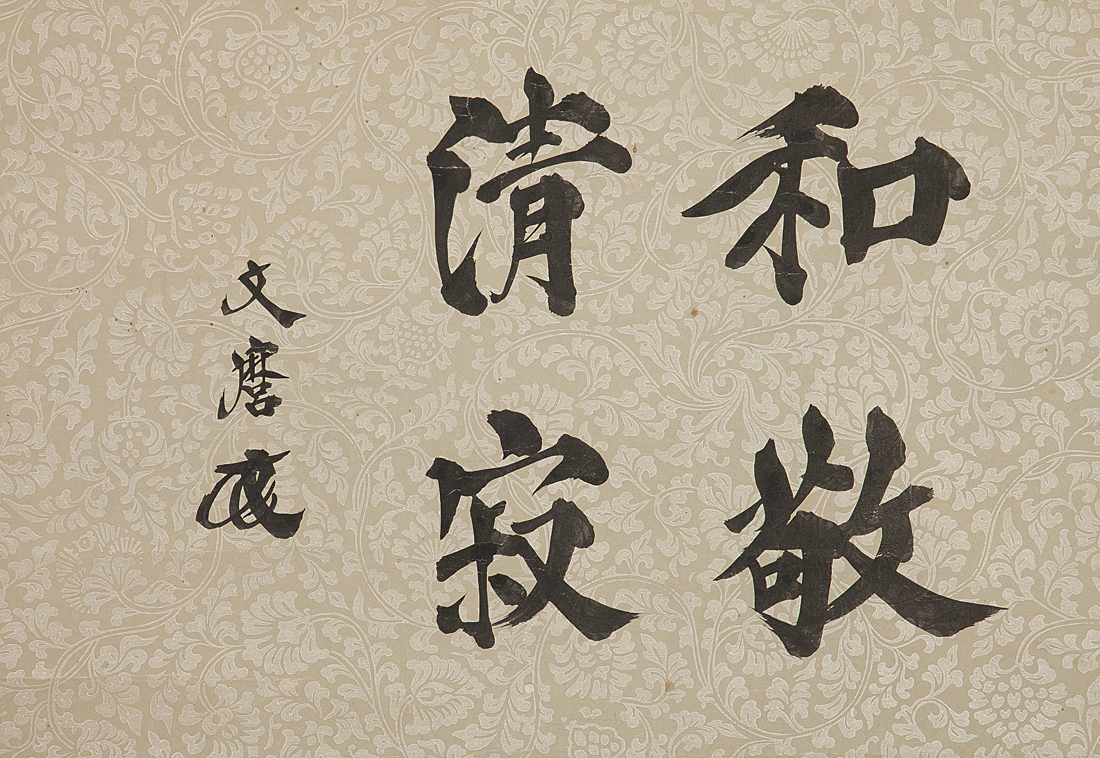 和敬
清寂
文麿